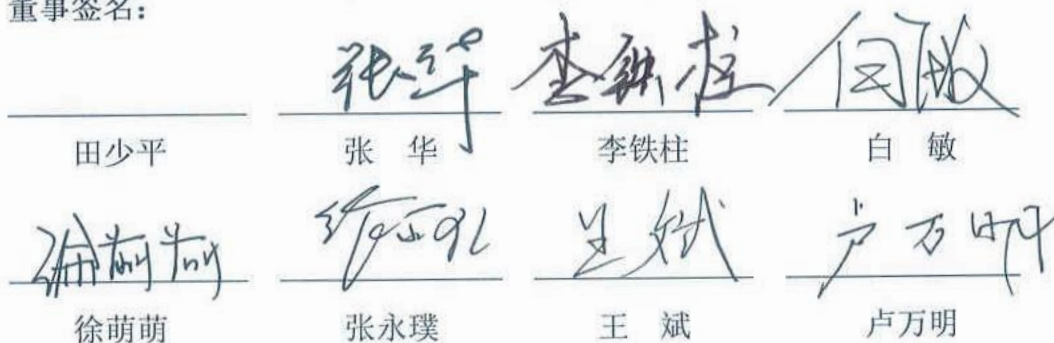 董事签名：
张华 李铁柱 白敏
田少平 张 华 李铁柱 白 敏
王斌 卢万明
徐萌萌 张永璞 王 斌 卢万明